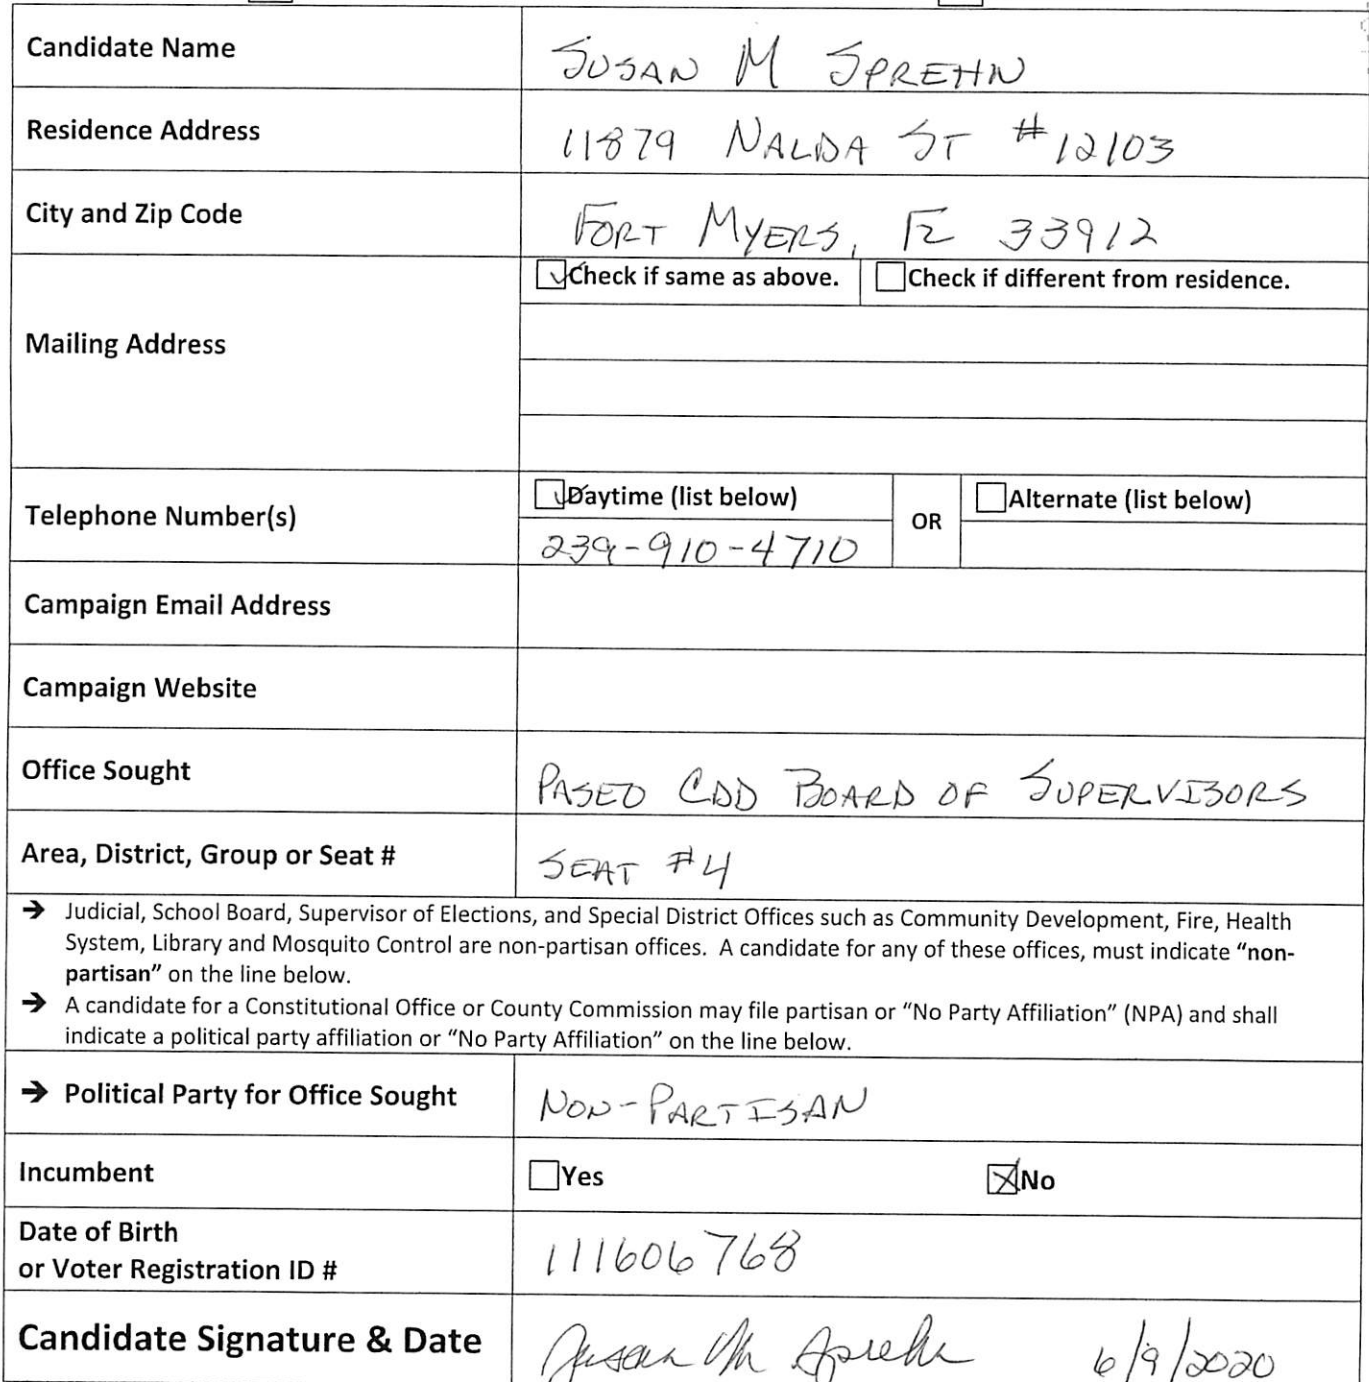 Candidate Name
SUSAN M SPREHN
Residence Address
11879 NALDA ST #12103
City and Zip Code
FORT MYERS, FL 33912
Mailing Address
Check if same as above.
Check if different from residence.
Telephone Number(s)
Daytime (list below)
OR
Alternate (list below)
239-910-4710
Campaign Email Address
Campaign Website
Office Sought
PASEO CDD BOARD OF SUPERVISORS
Area, District, Group or Seat #
SEAT #4
→ Judicial, School Board, Supervisor of Elections, and Special District Offices such as Community Development, Fire, Health
System, Library and Mosquito Control are non-partisan offices. A candidate for any of these offices, must indicate "non-
partisan" on the line below.
→ A candidate for a Constitutional Office or County Commission may file partisan or "No Party Affiliation" (NPA) and shall
indicate a political party affiliation or "No Party Affiliation" on the line below.
→ Political Party for Office Sought
NON-PARTISAN
Incumbent
Yes
No
Date of Birth
or Voter Registration ID #
111606768
Candidate Signature & Date
Susan M Sprehn 6/9/2020